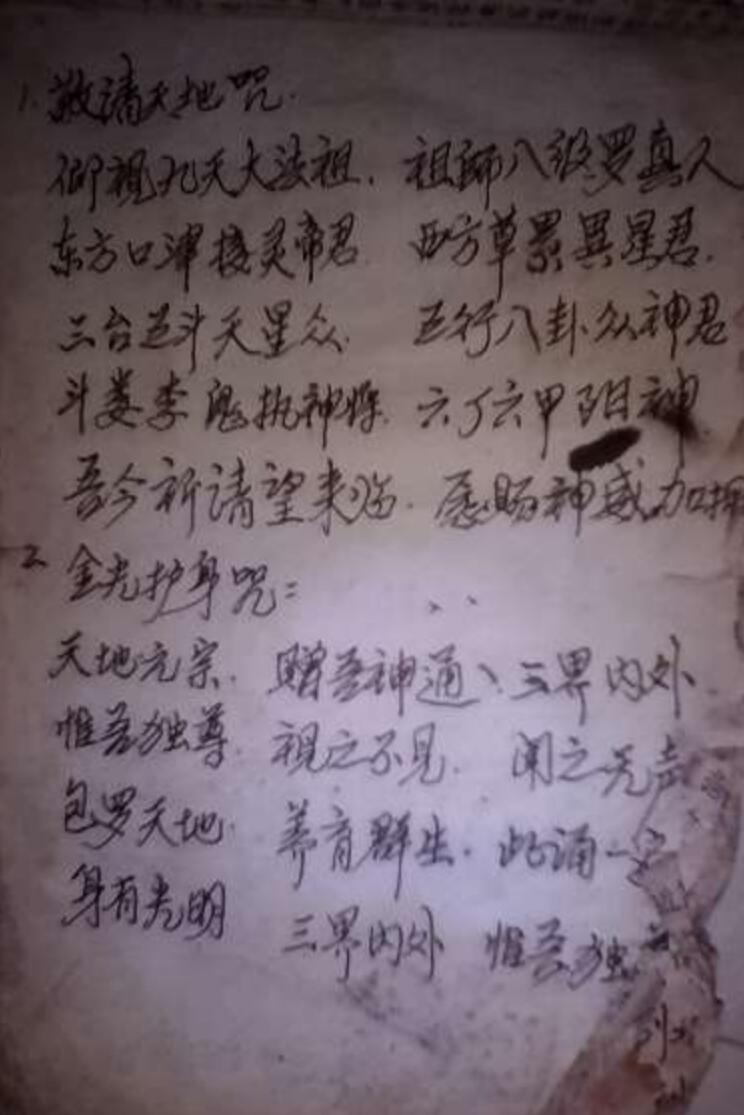 1. 敬请天地咒.
仰视九天大法祖. 祖师八级罗真人
东方口津接灵帝君 西方草累異星君.
三台五斗天星众. 五行八卦众神君
斗娄李鬼执神将. 六丁六甲阳神.
吾今祈请望来临. 愿赐神威加
2 金光护身咒:
天地元宗. 赠吾神通、三界内外
惟吾独尊. 视之不见. 闻之无声
包罗天地. 养育群生. 此诵一
身有光明 三界内外 惟吾独